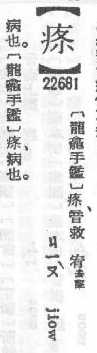 【】
22681
〔龍龕手鑑〕音救 宥去聲
ㄐㄧㄡˋ jiow
病也。〔龍龕手鑑〕、病也。